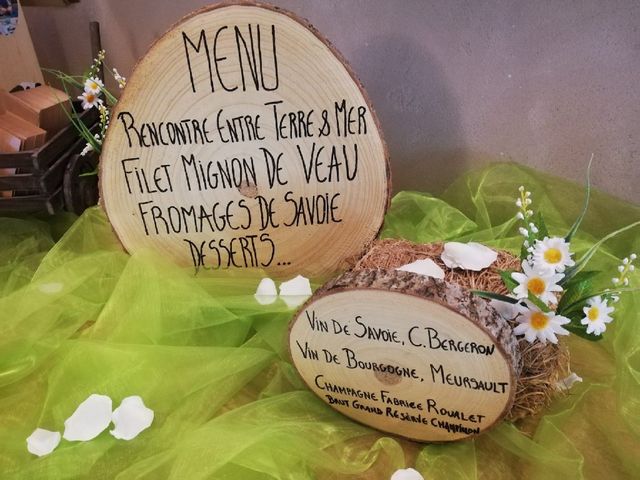 MENU
RENCONTRE ENTRE TERRE & MER
FILET MIGNON DE VEAU
FROMAGES DE SAVOIE
DESSERTS...
VIN DE SAVOIE, C. BERGERON
VIN DE BOURGOGNE, MEURSAULT
CHAMPAGNE FABRICE ROUALET
BRUT GRAND RÉSERVE